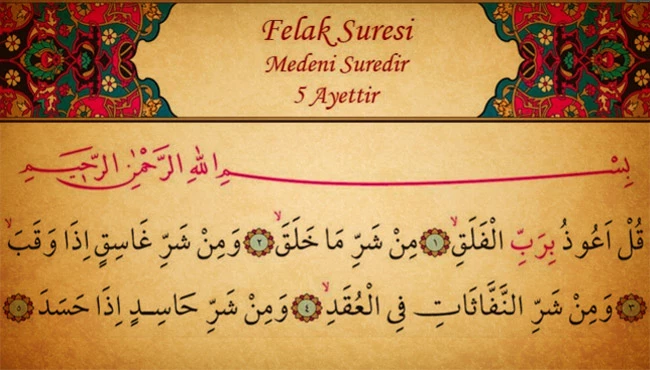 Felak Suresi
Medeni Suredir
5 Ayettir
بِسْمِ اللّٰهِ الرَّحْمٰنِ الرَّح۪يمِ
قُلْ اَعُوذُ بِرَبِّ الْفَلَقِۙ ﴿١﴾ مِنْ شَرِّ مَا خَلَقَۙ ﴿٢﴾ وَمِنْ شَرِّ غَاسِقٍ اِذَا وَقَبَۙ
﴿٣﴾ وَمِنْ شَرِّ النَّفَّاثَاتِ فِي الْعُقَدِۙ ﴿٤﴾ وَمِنْ شَرِّ حَاسِدٍ اِذَا حَسَدَ ﴿٥﴾